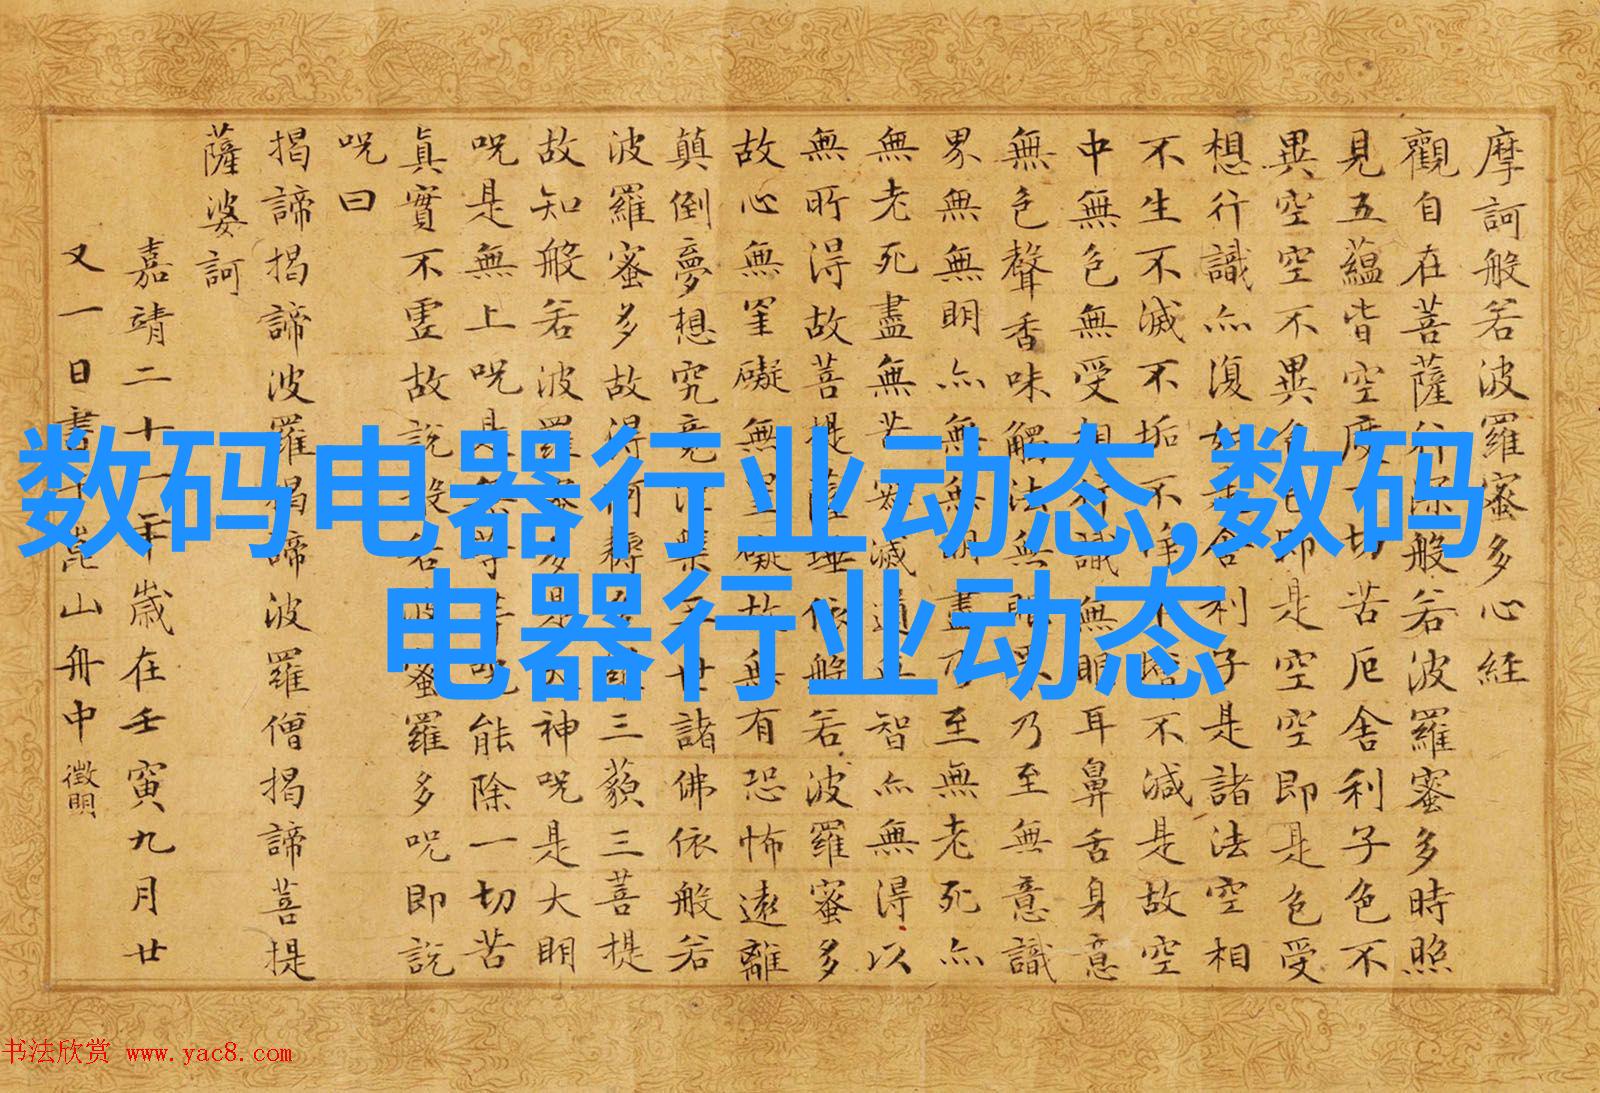 摩訶般若波羅蜜多心經
觀自在菩薩行深般若波羅蜜多時照
見五蘊皆空度一切苦厄舍利子色不
異空空不異色色即是空空即是色受
想行識亦復如是舍利子是諸法空相
不生不滅不垢不淨不增不減是故空
中無色無受想行識無眼耳鼻舌身意
無色聲香味觸法無眼界乃至無意識
界無無明亦無無明盡乃至無老死亦
無老死盡無苦集滅道無智亦無得以
無所得故菩提薩埵依般若波羅蜜多
故心無罣礙無罣礙故無有恐怖遠離
顛倒夢想究竟涅槃三世諸佛依般若
波羅蜜多故得阿耨多羅三藐三菩提
故知般若波羅蜜多是大神呪是大明
呪是無上呪是無等等呪能除一切苦
眞實不虛故說般若波羅蜜多呪即說
呪曰
揭諦揭諦波羅揭諦波羅僧揭諦菩提
薩婆訶
嘉靖二十一年歲在壬寅九月廿
又一日書于崑山舟中 徵明
数码电器行业动态,数码
电器行业动态
书法欣赏 www.yac8.com